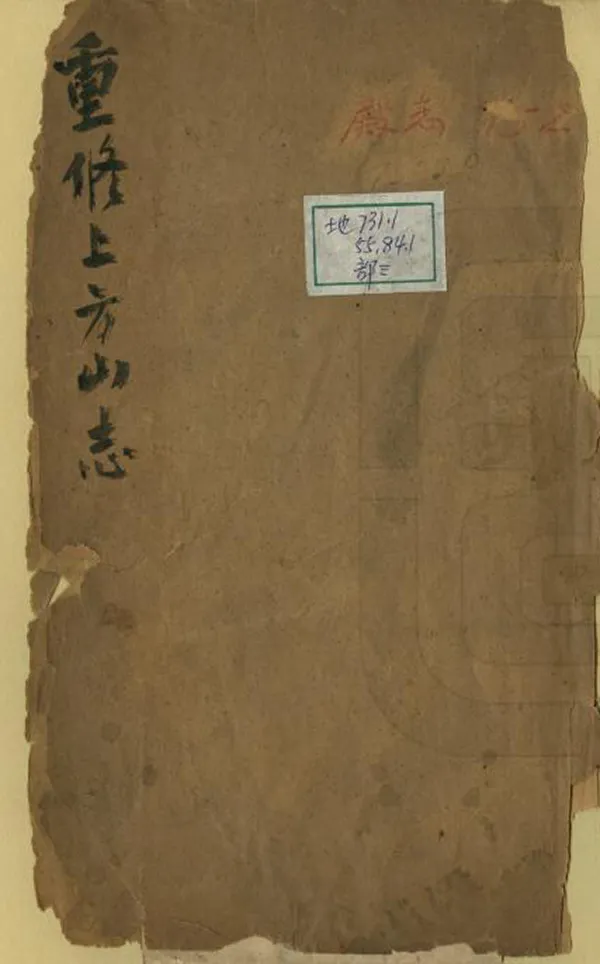 重修上方山志
地 731.1
55.84.1
部三